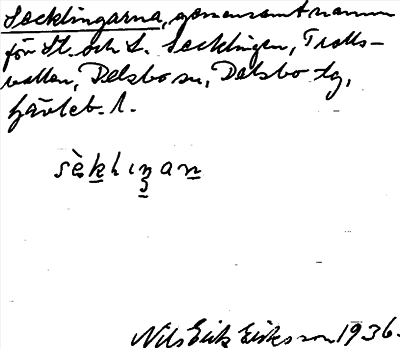 Secklingarna, gemensamt namn
för St. och L. Secklingen, Trolls-
vallen, Delsbo sn, Delsbo tg,
Gävleb. l.
sèklıŋan
Nils Erik Eriksson 1936.